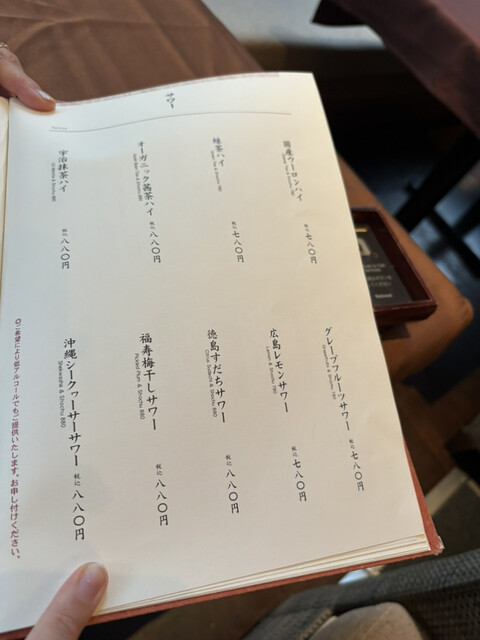 サワー
国産ウーロンハイ
税込 七八〇円
緑茶ハイ
税込 七八〇円
オーガニック茜茶ハイ
税込 八八〇円
宇治抹茶ハイ
税込 八八〇円
グレープフルーツサワー
Grapefruit & Shochu 780
税込 七八〇円
広島レモンサワー
Lemon & Shochu 780
税込 七八〇円
徳島すだちサワー
Citrus Sudachi & Shochu 880
税込 八八〇円
福寿梅干しサワー
Pickled Plum & Shochu 880
税込 八八〇円
沖縄シークヮーサーサワー
Shekwasha & Shochu 880
税込 八八〇円
◎ご希望により低アルコールでもご提供いたします。お申し付けください。